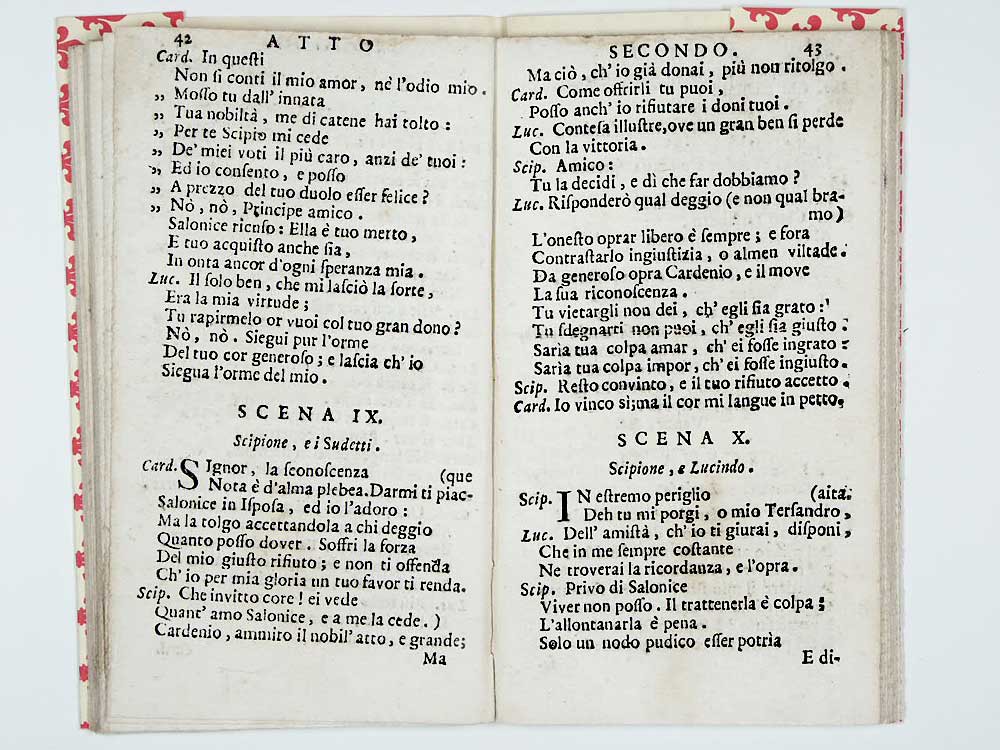 42 ATTO
Card. In queſti
Non ſi conti il mio amor, nè l'odio mio.
„ Moſſo tu dall' innata
„ Tua nobiltà, me di catene hai tolto:
„ Per te Scipio mi cede
„ De' miei voti il più caro, anzi de' tuoi:
„ Ed io conſento, e poſſo
„ A prezzo del tuo duolo eſſer felice?
„ Nò, nò, Principe amico.
Salonice ricuſo: Ella è tuo merto,
E tuo acquiſto anche ſia,
In onta ancor d'ogni ſperanza mia.
Luc. Il ſolo ben, che mi laſciò la ſorte,
Era la mia virtude;
Tu rapirmelo or vuoi col tuo gran dono?
Nò, nò. Siegui pur l'orme
Del tuo cor generoſo; e laſcia ch' io
Siegua l'orme del mio.
SCENA IX.
Scipione, e i Sudetti.
Card. SIgnor, la ſconoſcenza (que
Nota è d'alma plebea. Darmi ti piac-
Salonice in Iſpoſa, ed io l'adoro:
Ma la tolgo accettandola a chi deggio
Quanto poſſo dover. Soffri la forza
Del mio giuſto rifiuto; e non ti offenda
Ch' io per mia gloria un tuo favor ti renda.
Scip. Che invitto core! ei vede
Quant' amo Salonice, e a me la cede.)
Cardenio, ammiro il nobil' atto, e grande;
Ma
SECONDO. 43
Ma ciò, ch' io già donai, più non ritolgo.
Card. Come offrirli tu puoi,
Poſſo anch' io rifiutare i doni tuoi.
Luc. Conteſa illuſtre, ove un gran ben ſi perde
Con la vittoria.
Scip. Amico:
Tu la decidi, e dì che far dobbiamo?
Luc. Riſponderò qual deggio (e non qual bra-
mo)
L'oneſto oprar libero è ſempre; e fora
Contraſtarlo ingiuſtizia, o almen viltade.
Da generoſo opra Cardenio, e il move
La ſua riconoſcenza.
Tu vietargli non dei, ch' egli ſia grato:
Tu ſdegnarti non puoi, ch' egli ſia giuſto:
Sarìa tua colpa amar, ch' ei foſſe ingrato:
Sarìa tua colpa impor, ch' ei foſſe ingiuſto.
Scip. Reſto convinto, e il tuo rifiuto accetto.
Card. Io vinco sì; ma il cor mi langue in petto.
SCENA X.
Scipione, e Lucindo.
Scip. IN eſtremo periglio (aita.
Deh tu mi porgi, o mio Terſandro,
Luc. Dell' amiſtà, ch' io ti giurai, diſponi,
Che in me ſempre coſtante
Ne troverai la ricordanza, e l'opra.
Scip. Privo di Salonice
Viver non poſſo. Il trattenerla è colpa;
L'allontanarla è pena.
Solo un nodo pudico eſſer potrìa
E di-